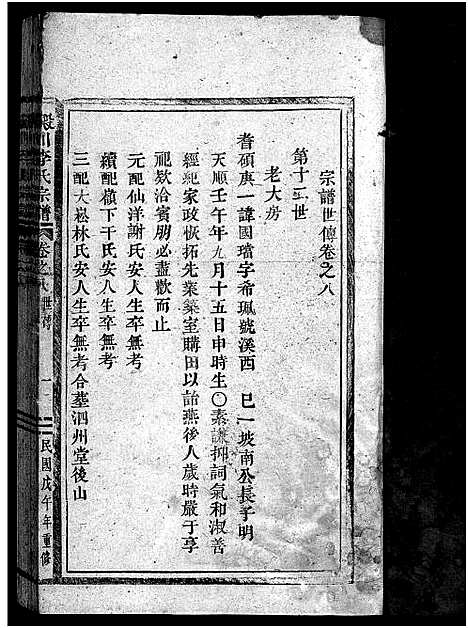 宗譜世傳卷之八
第十二世
老大房
耆碩庚一諱國璫字希珮號溪西 巳一坡南公長子明
天順壬午年九月十五日申時生〇素謙抑詞氣和淑善
經紀家政恢拓先業築室購田以詒燕後人歲時嚴于享
祀欵洽賓朋必盡歡而止
元配仙洋謝氏安人生卒無考
續配嶺下干氏安人生卒無考
三配大崧林氏安人生卒無考合墓泗州堂後山
川李氏宗譜 卷之八 世傳 一 民國戊午年重修